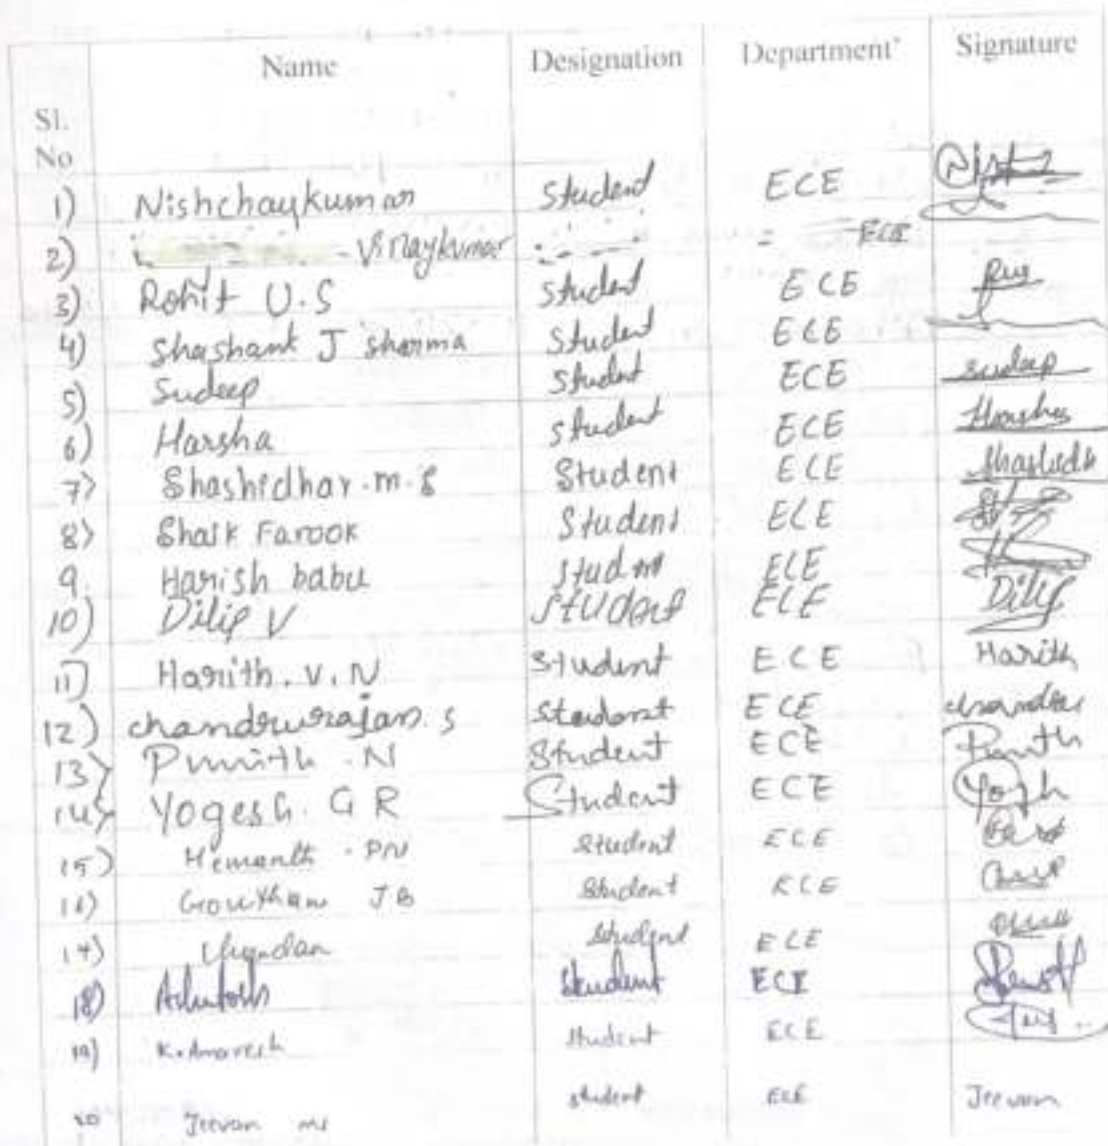 Sl. No Name Designation Department Signature
1) Nishchaykumar Student ECE
2) Vinaykumar ECE
3) Rohit U.S Student ECE
4) Shashank J Sharma Student ECE
5) Sudeep Student ECE sudeep
6) Harsha Student ECE Harsha
7) Shashidhar.m.s Student ECE Shashidh
8) Shaik Farook Student ECE
9. Harish babu Student ECE
10) Dilip V Student ECE Dilip
11) Harith.V.N Student ECE Harith
12) chandrurajan.s Student ECE
13) Punith.N Student ECE Punith
14) Yogesh.G R Student ECE
15) Hemanth.PN Student ECE
16) Gowtham J B Student ECE
17) Student ECE
18) Ashutosh Student ECE
19) K.Amaresh Student ECE
20 Jeevan ms student ECE Jeevan